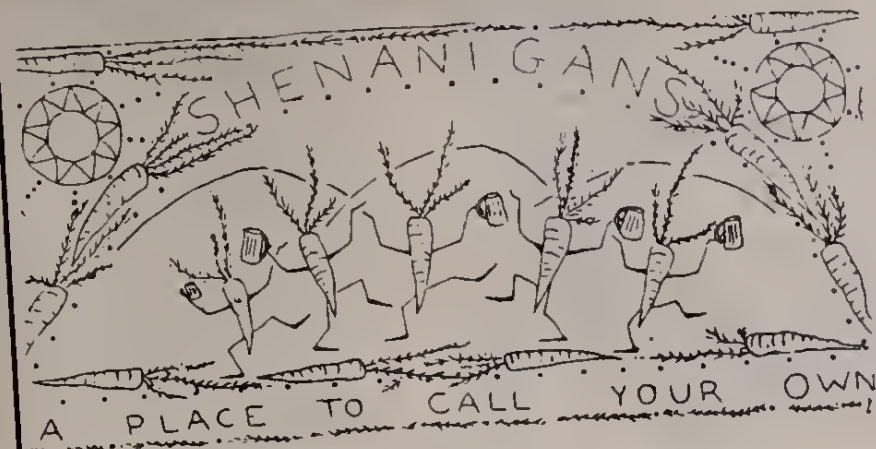 SHENANIGANS
A PLACE TO CALL YOUR OWN